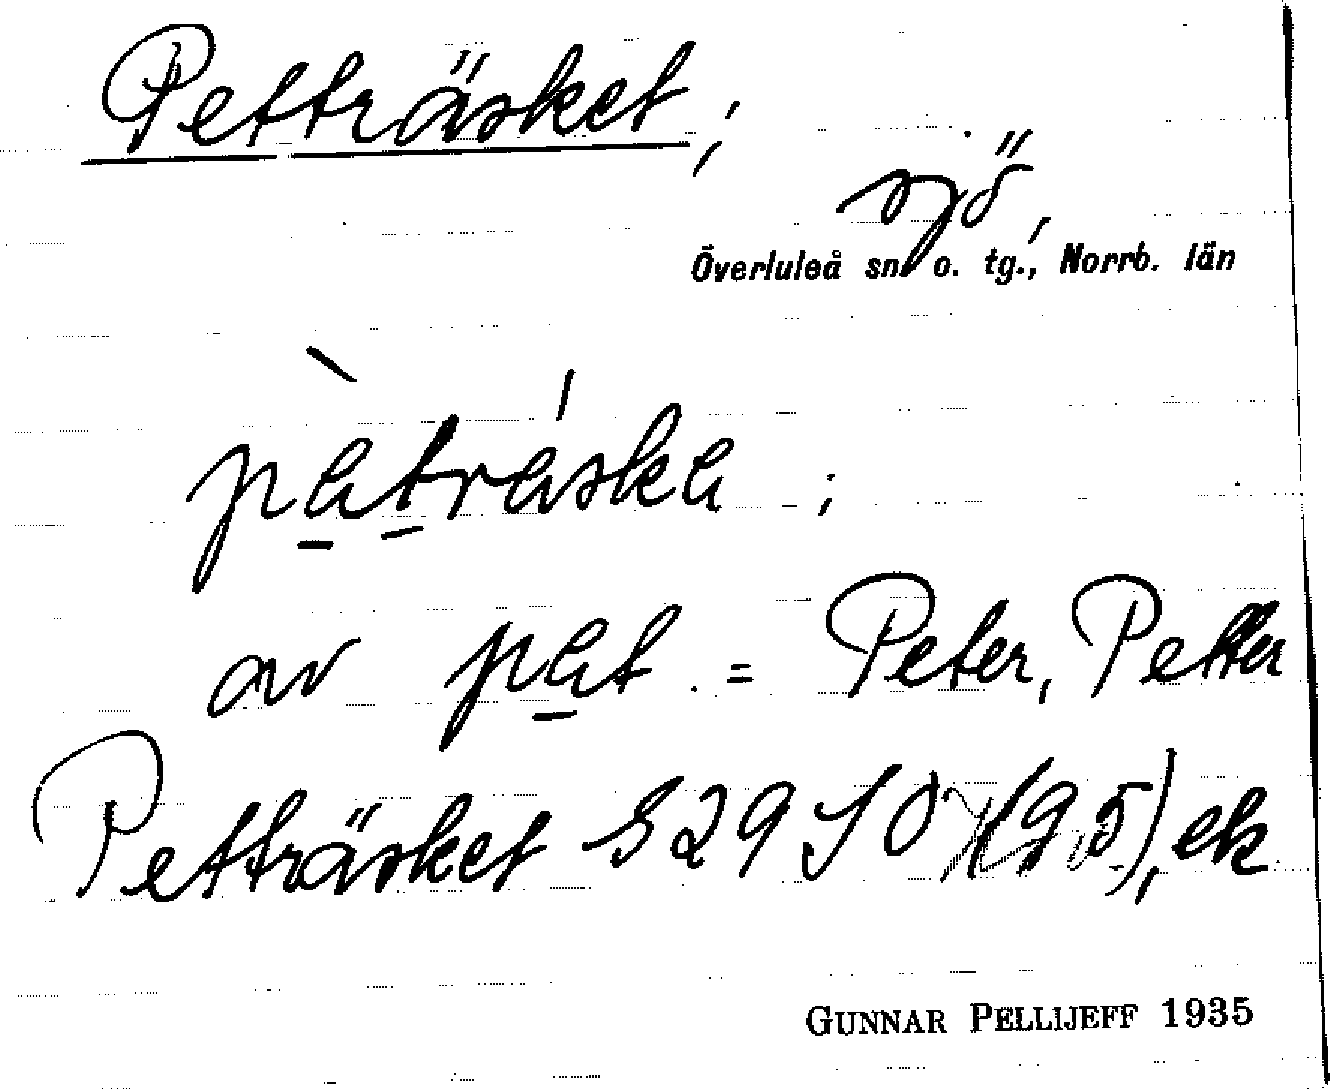 Petträsket;
sjö,
Överluleå sn. o. tg., Norrb. län
pàtráska;
av pat = Peter, Petter
Petträsket S29 (95), ek
GUNNAR PELLIJEFF 1935